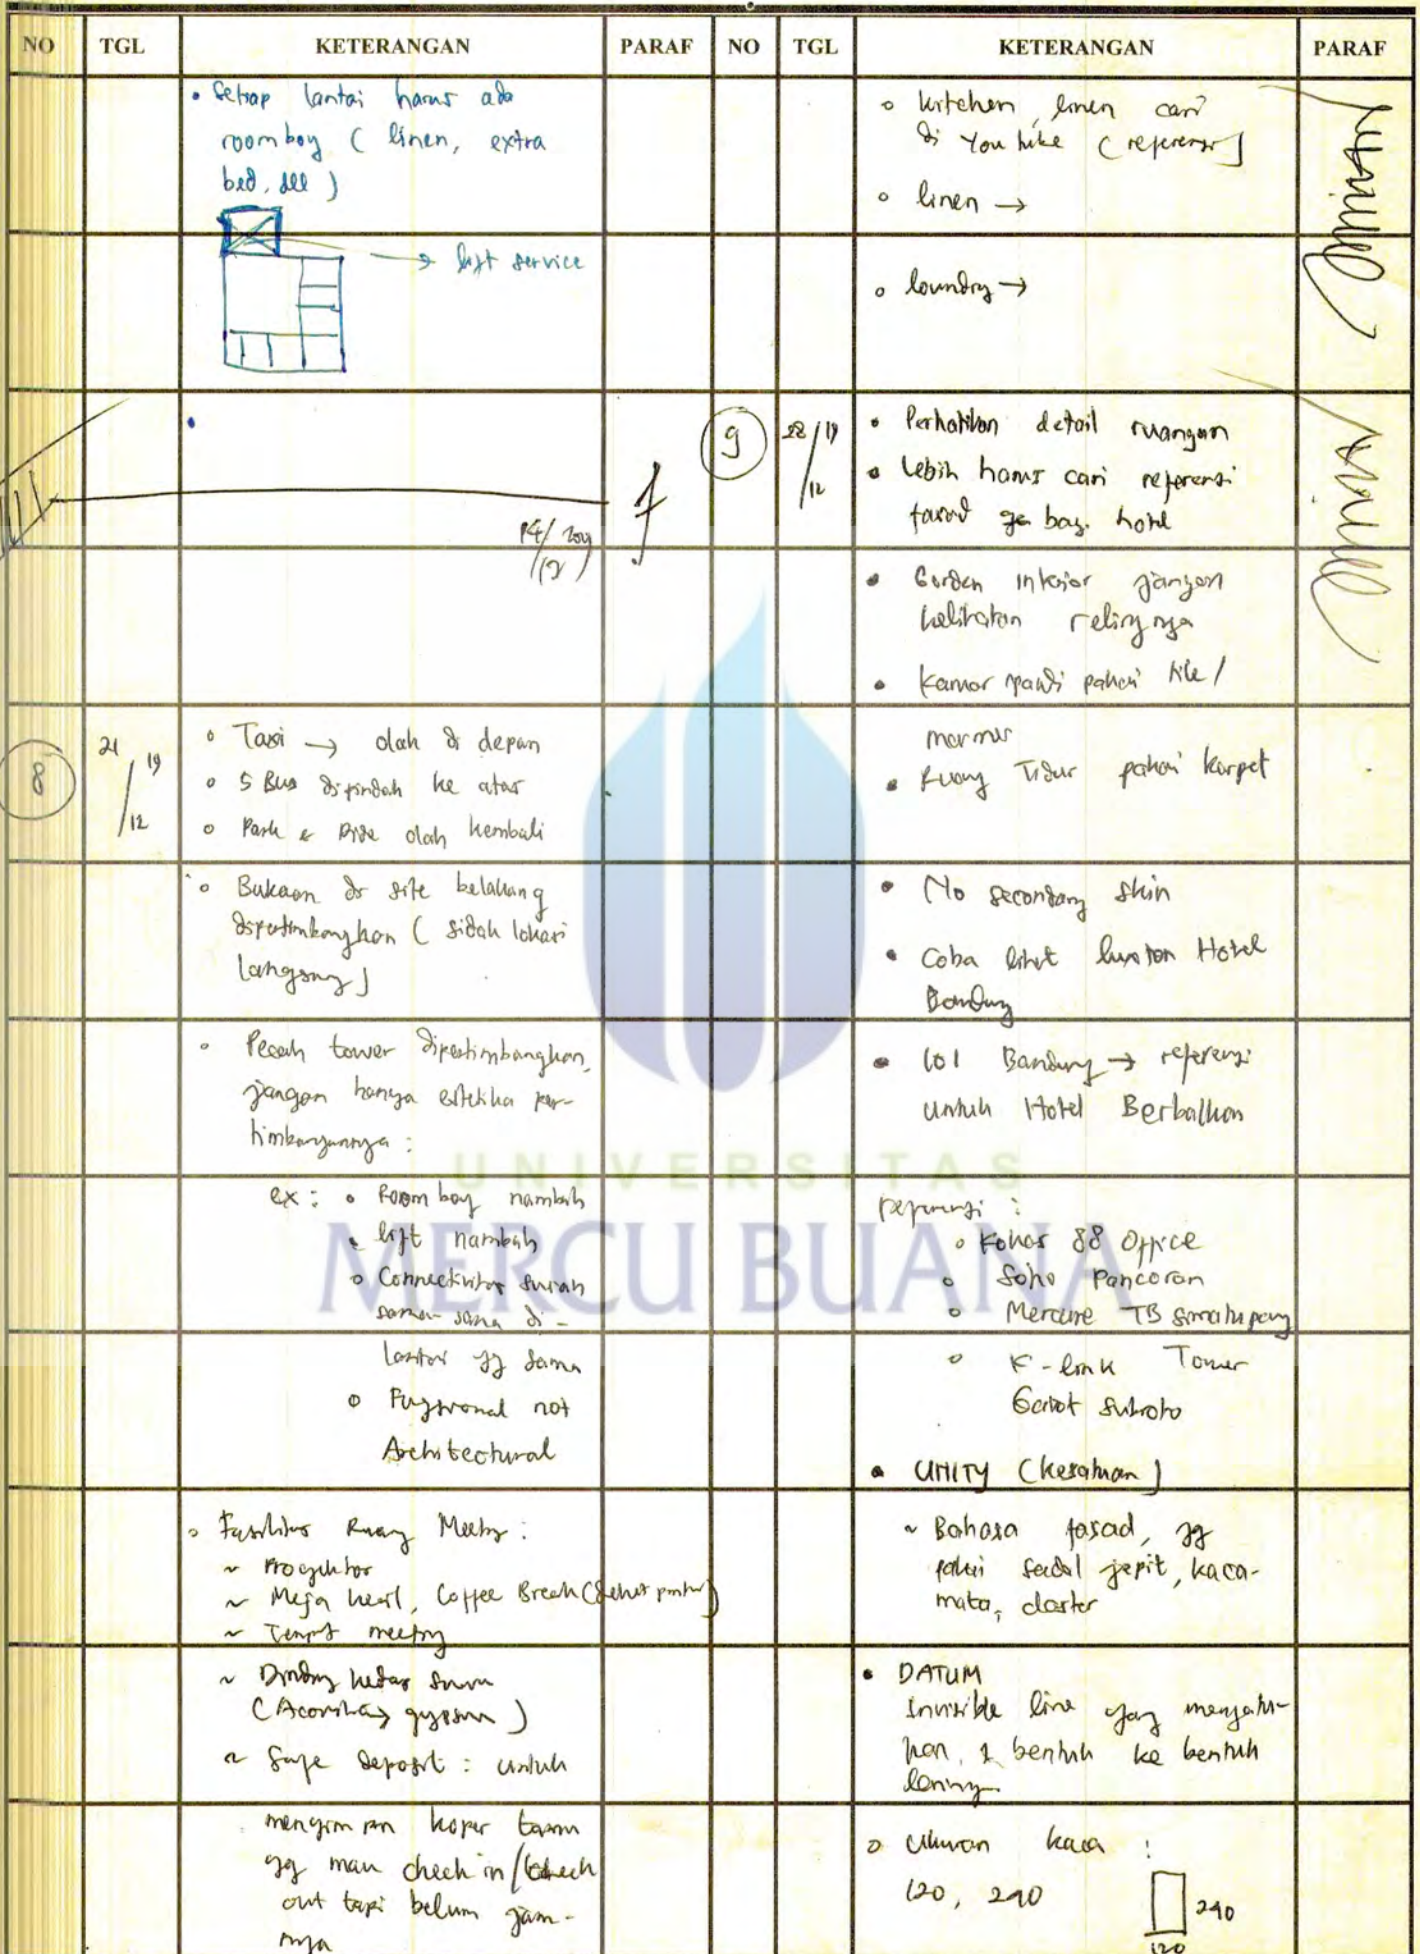 NO TGL KETERANGAN PARAF NO TGL KETERANGAN PARAF
• Setiap lantai harus ada
room boy ( linen, extra
bed, dll )
→ lift service
14/2019
/12
8
21/19
/12
◦ Taxi → olah di depan
◦ 5 Bus dipindah ke atas
◦ Park & Ride olah kembali
◦ Bukaan di site belakang
dipertimbangkan ( sidak lokasi
langsung )
◦ Pecah tower dipertimbangkan,
jangan hanya estetika per-
timbangannya :
ex : ◦ Room boy nambah
• lift nambah
◦ Connectivitas
sama-sama di-
lantai yg sama
◦ Fungsional not
Architectural
◦ Fasilitas Ruang Meeting :
~ Proyektor
~ Meja kecil, Coffee Break (dekat pantry)
~ Tempat meeting
~ Dinding kedap suara
( → gypsum )
~ Safe deposit : untuk
menyimpan koper tamu
yg mau check in / check
out tapi belum jam-
nya
◦ kitchen, linen cari
di Youtube ( referensi )
◦ linen →
◦ loundry →
9
28/19
/12
• Perhatikan detail ruangan
• Lebih harus cari referensi
fasad hotel
• Gorden interior jangan
kelihatan relingnya
• Kamar mandi pakai tile /
marmer
• Ruang Tidur pakai karpet
• No secondary skin
• Coba lihat Hotel
Bandung
• 101 Bandung → referensi
untuk Hotel Berbalkon
referensi :
◦ 88 Office
◦ Soho Pancoran
◦ Mercure TB Simatupang
◦ K-link Tower
Gatot Subroto
• UNITY (kesatuan)
~ Bahasa fasad, yg
pakai sendal jepit, kaca-
mata, daster
• DATUM
Invisible line yang menyatu-
kan 1 bentuk ke bentuk
lainnya
◦ Ukuran kaca :
120, 240
240
120
UNIVERSITAS
MERCU BUANA